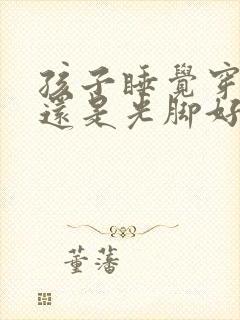 孩子睡覺穿
還是光脚好
董藩